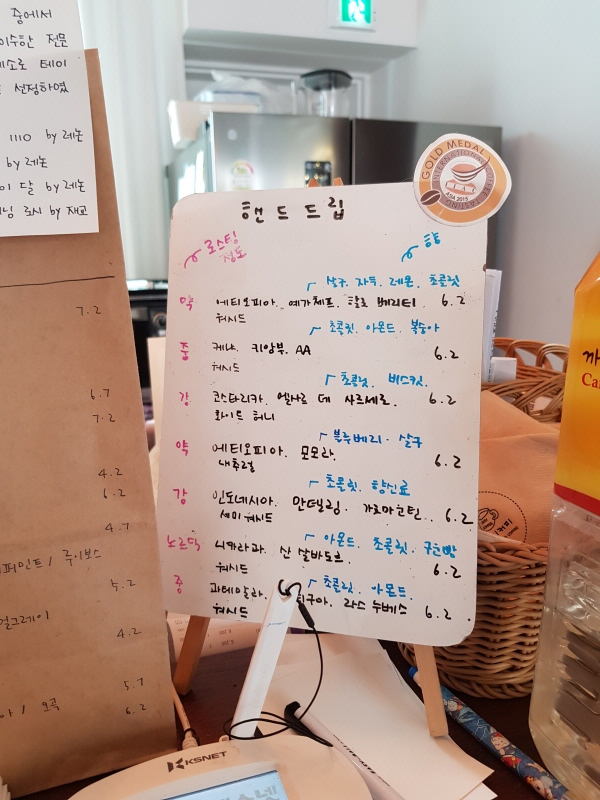 중에서
전문
테이
선정하였
1110 by 레논
by 레논
달 by 레논
로시 by 재교
7.2
6.7
7.2
4.2
6.2
4.7
퍼민트 / 루이보스
5.2
얼그레이
4.2
5.7
/ 오곡
6.2
GOLD MEDAL
INTERNATIONAL
TASTING
ASIA 2015
핸드드립
로스팅
정도
향
살구. 자두. 레몬. 초콜릿
약 에티오피아. 예가체프. 할로 베리티. 6.2
워시드
초콜릿. 아몬드. 복숭아
중 케냐. 키암부. AA 6.2
워시드
초콜릿. 비스킷.
강 코스타리카. 엘사르 데 사르세로. 6.2
화이트 허니
블루베리. 살구
약 에티오피아. 모모라. 6.2
내추럴
초콜릿. 향신료
강 인도네시아. 만델링. 가요마운틴. 6.2
세미 워시드
아몬드. 초콜릿. 군밤
노르딕 니카라과. 산 살바도르. 6.2
워시드
초콜릿. 아몬드.
중 과테말라. 티구아. 라스 누베스 6.2.
워시드
KSNET
Ca